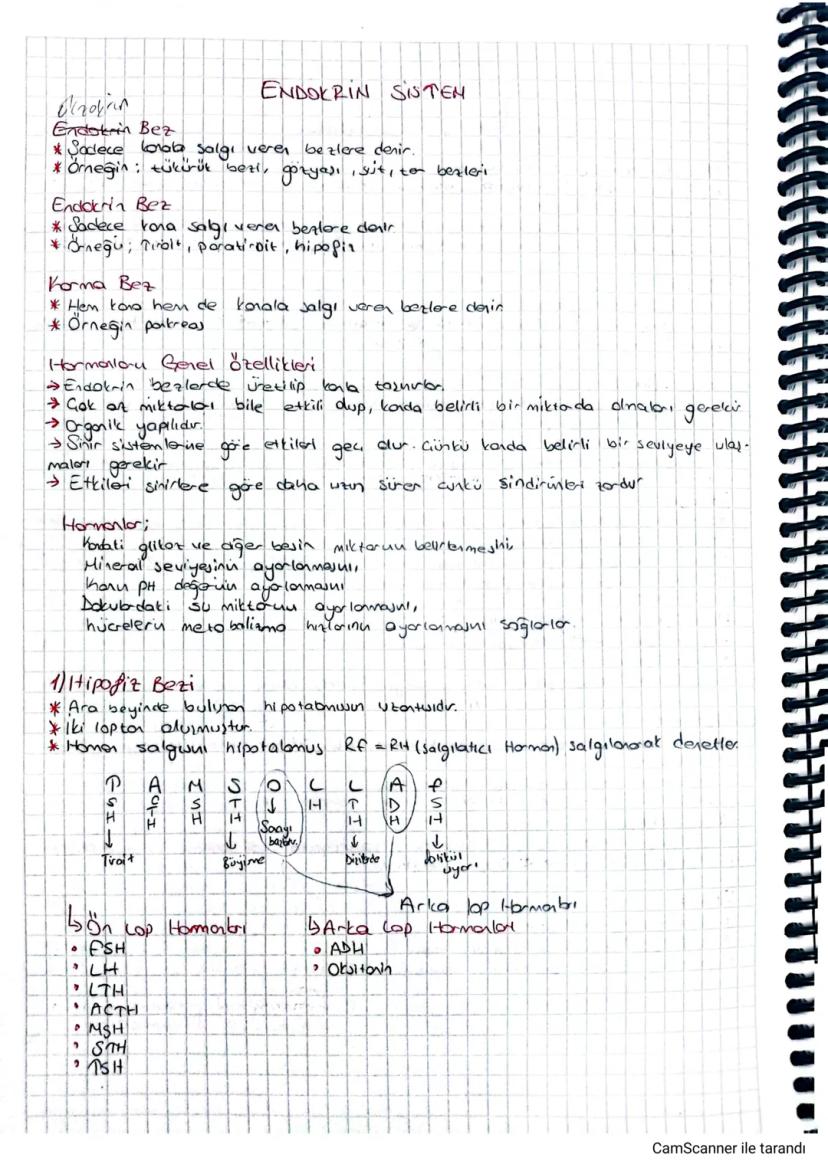 ENDOKRİN SİSTEM
Ekzokrin
Endokrin Bez
* Sadece kanala salgı veren bezlere denir.
* Örneğin; tükürük bezi, gözyaşı, süt, ter bezleri
Endokrin Bez
* Sadece kana salgı veren bezlere denir.
* Örneğin; Tiroit, paratiroit, hipofiz
Karma Bez
* Hem kana hem de kanala salgı veren bezlere denir
* Örneğin pankreas
Hormonların Genel Özellikleri
→ Endokrin bezlerde üretilip kanla taşınırlar.
→ Çok az miktarları bile etkili olup, kanda belirli bir miktarda olmaları gerekir
→ Organik yapılıdır.
→ Sinir sistemlerine göre etkileri geç olur. Çünkü kanda belirli bir seviyeye ulaş-
maları gerekir
→ Etkileri sinirlere göre daha uzun sürer çünkü sindirimleri zordur
Hormonlar;
Kandaki glikoz ve diğer besin miktarının belirlenmesini,
Mineral seviyesinin ayarlanmasını,
Kanın PH değerinin ayarlanmasını
Dokulardaki su miktarının ayarlanmasını,
hücrelerin metabolizma hızlarının ayarlanmasını sağlarlar.
1) Hipofiz Bezi
* Ara beyinde bulunan hipotalamusun uzantısıdır.
* İki loptan oluşmuştur.
* Hormon salgısını hipotalamus RF = RH (Salgılatıcı Hormon) salgılanarak denetler.
TSH ACTH MSH STH O LH LTH ADH FSH
↓ Tiroit ↓ Büyüme ↓ bazları. ↓ ↓ folikül
uyarı
Arka lop Hormonları
↳ Ön Lop Hormonları
• FSH
• LH
• LTH
• ACTH
• MSH
• STH
• TSH
↳ Arka Lop Hormonları
• ADH
• Oksitosin
CamScanner ile tarandı